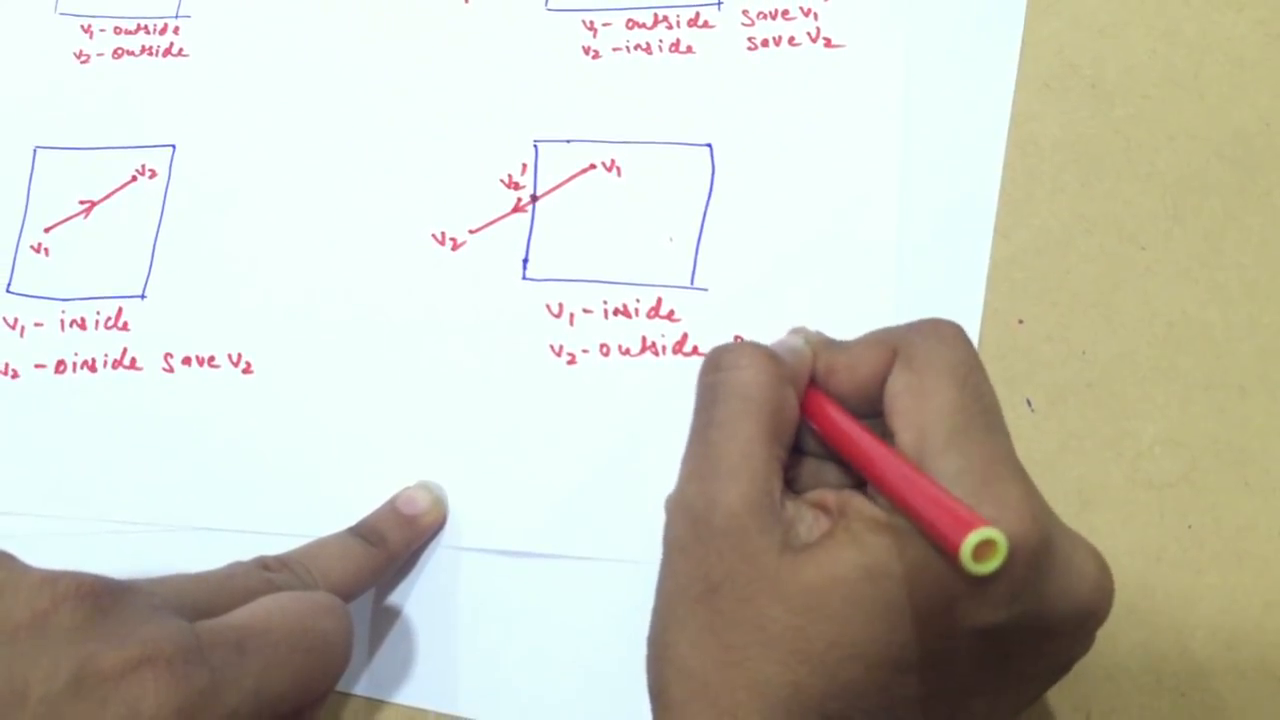 v1 - outside
v2 - outside
v1 - outside save v1
v2 - inside save v2
v2
v1
v1 - inside
v2 - inside save v2
v2'
v1
v2
v1 - inside
v2 - outside